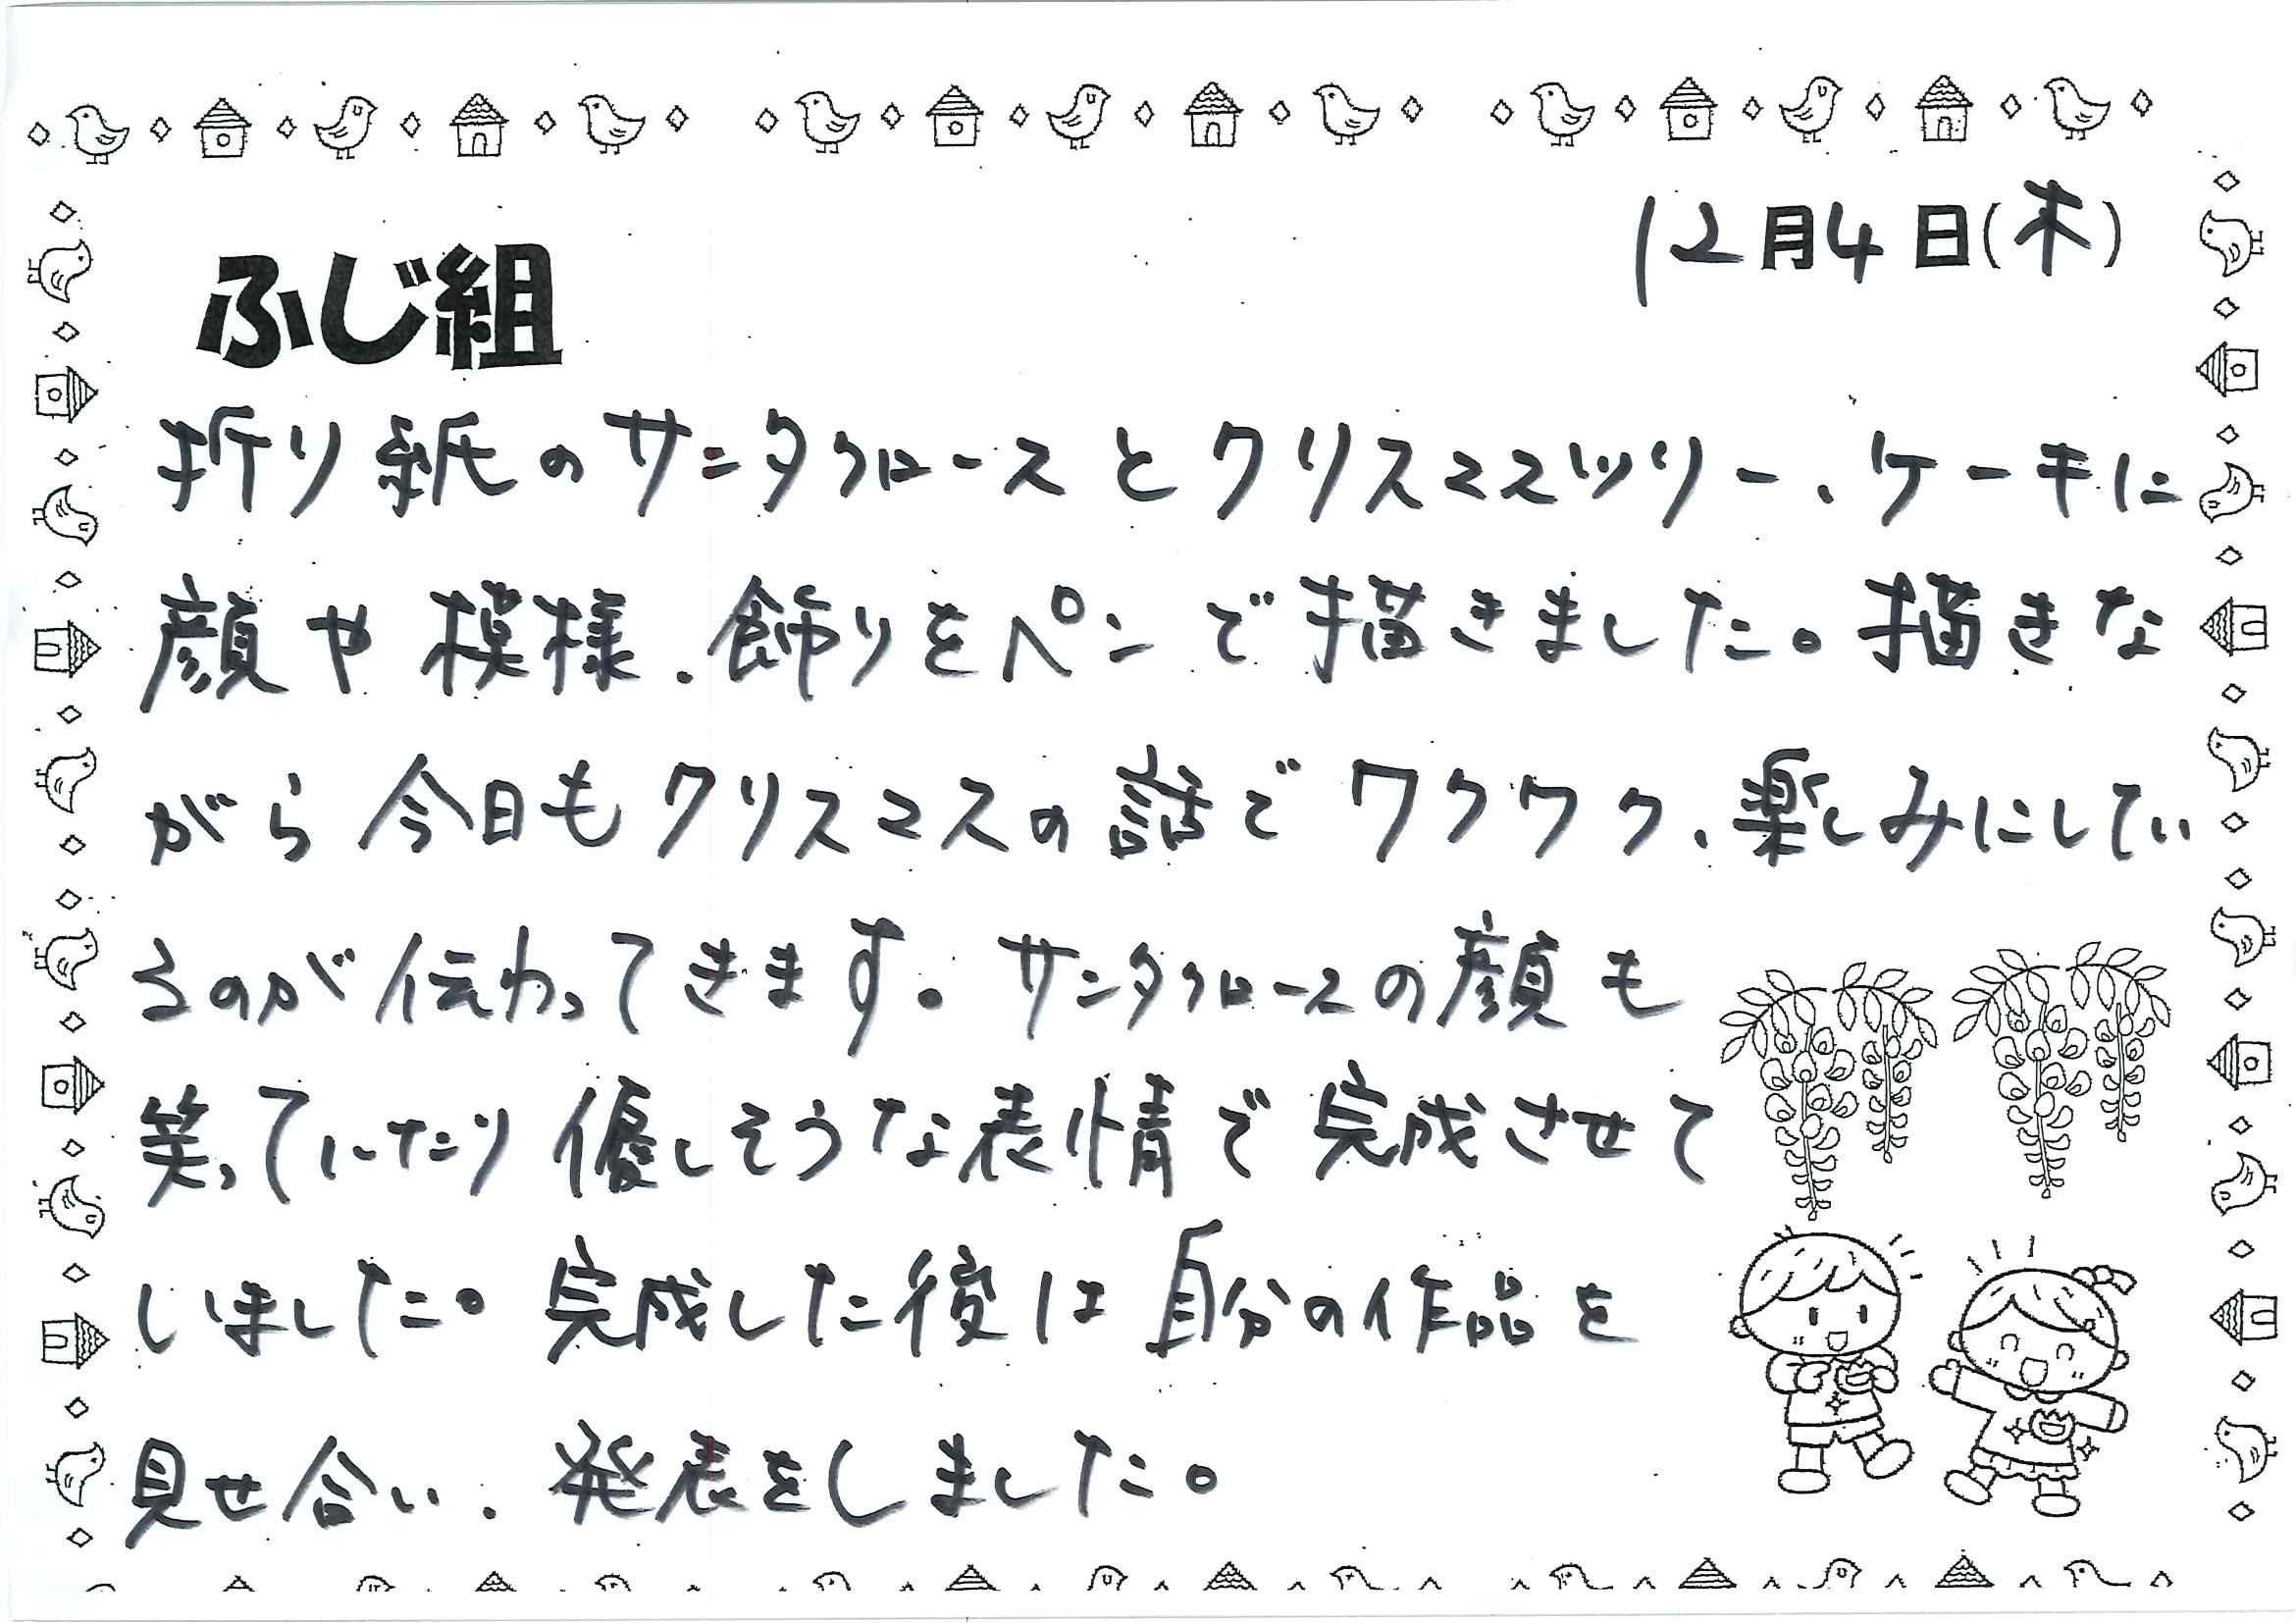 12月4日(木)
ふじ組
折り紙のサンタクロースとクリスマスツリー、ケーキに
顔や模様、飾りをペンで描きました。描きな
がら今日もクリスマスの話でワクワク、楽しみにしてい
るのが伝わってきます。サンタクロースの顔も
笑っていたり優しそうな表情で完成させて
いました。完成した後は自分の作品を
見せ合い、発表をしました。